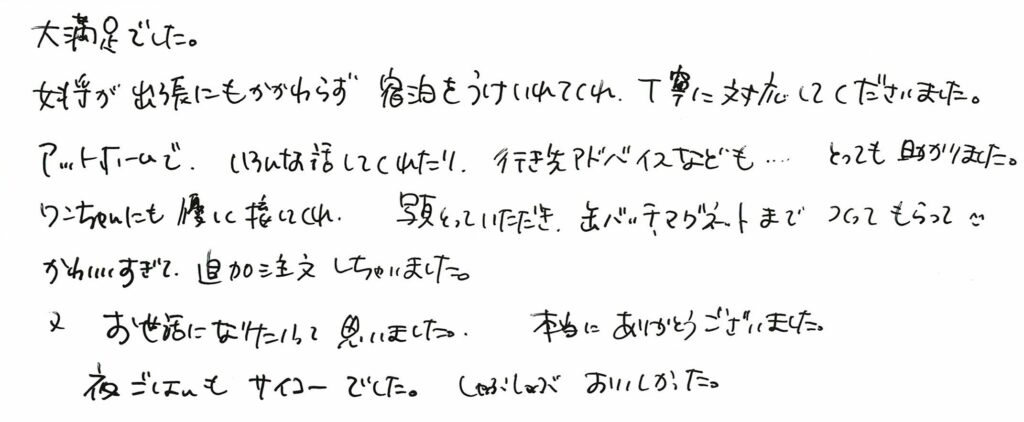 大満足でした。
女将が出張にもかかわらず 宿泊をうけいれてくれ、丁寧に対応してくださいました。
アットホームで、いろんな話してくれたり、行き先アドバイスなども…. とっても助かりました。
ワンちゃんにも優しく接してくれ、 写真とっていただき、缶バッチ、マグネットまで つくってもらって
かわいいすぎて、追加注文しちゃいました。
又 お世話になりたいって思いました。 本当にありがとうございました。
夜ごはんも サイコーでした。 しゃぶしゃぶ おいしかった。